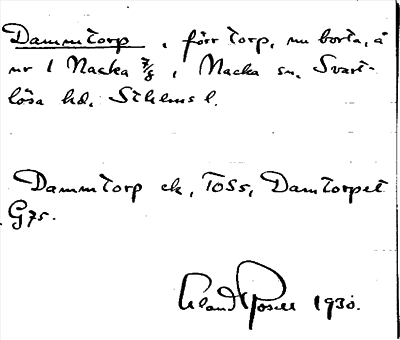 Dammtorp, förr torp, nu borta, å
nr 1 Nacka 7/8, Nacka sn, Svart-
lösa hd, Sthlms l.
Dammtorp ek, TOSS, Damtorpet
G75.
Erland Rosell 1930.